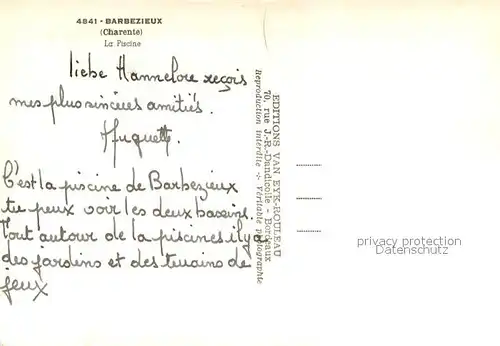 4841 - BARBEZIEUX
(Charente)
La Piscine
liebe Hannelore reçois
mes plus sincères amitiés.
Huguette.
C'est la piscine de Barbezieux
tu peux voir les deux bassins.
Tout autour de la piscine il y a
des jardins et des terrains de
jeux
EDITIONS VAN EYK-ROULEAU
70, rue J.-R.-Dandicolle - Bordeaux
Reproduction interdite ⁘ Véritable photographie
privacy protection
Datenschutz